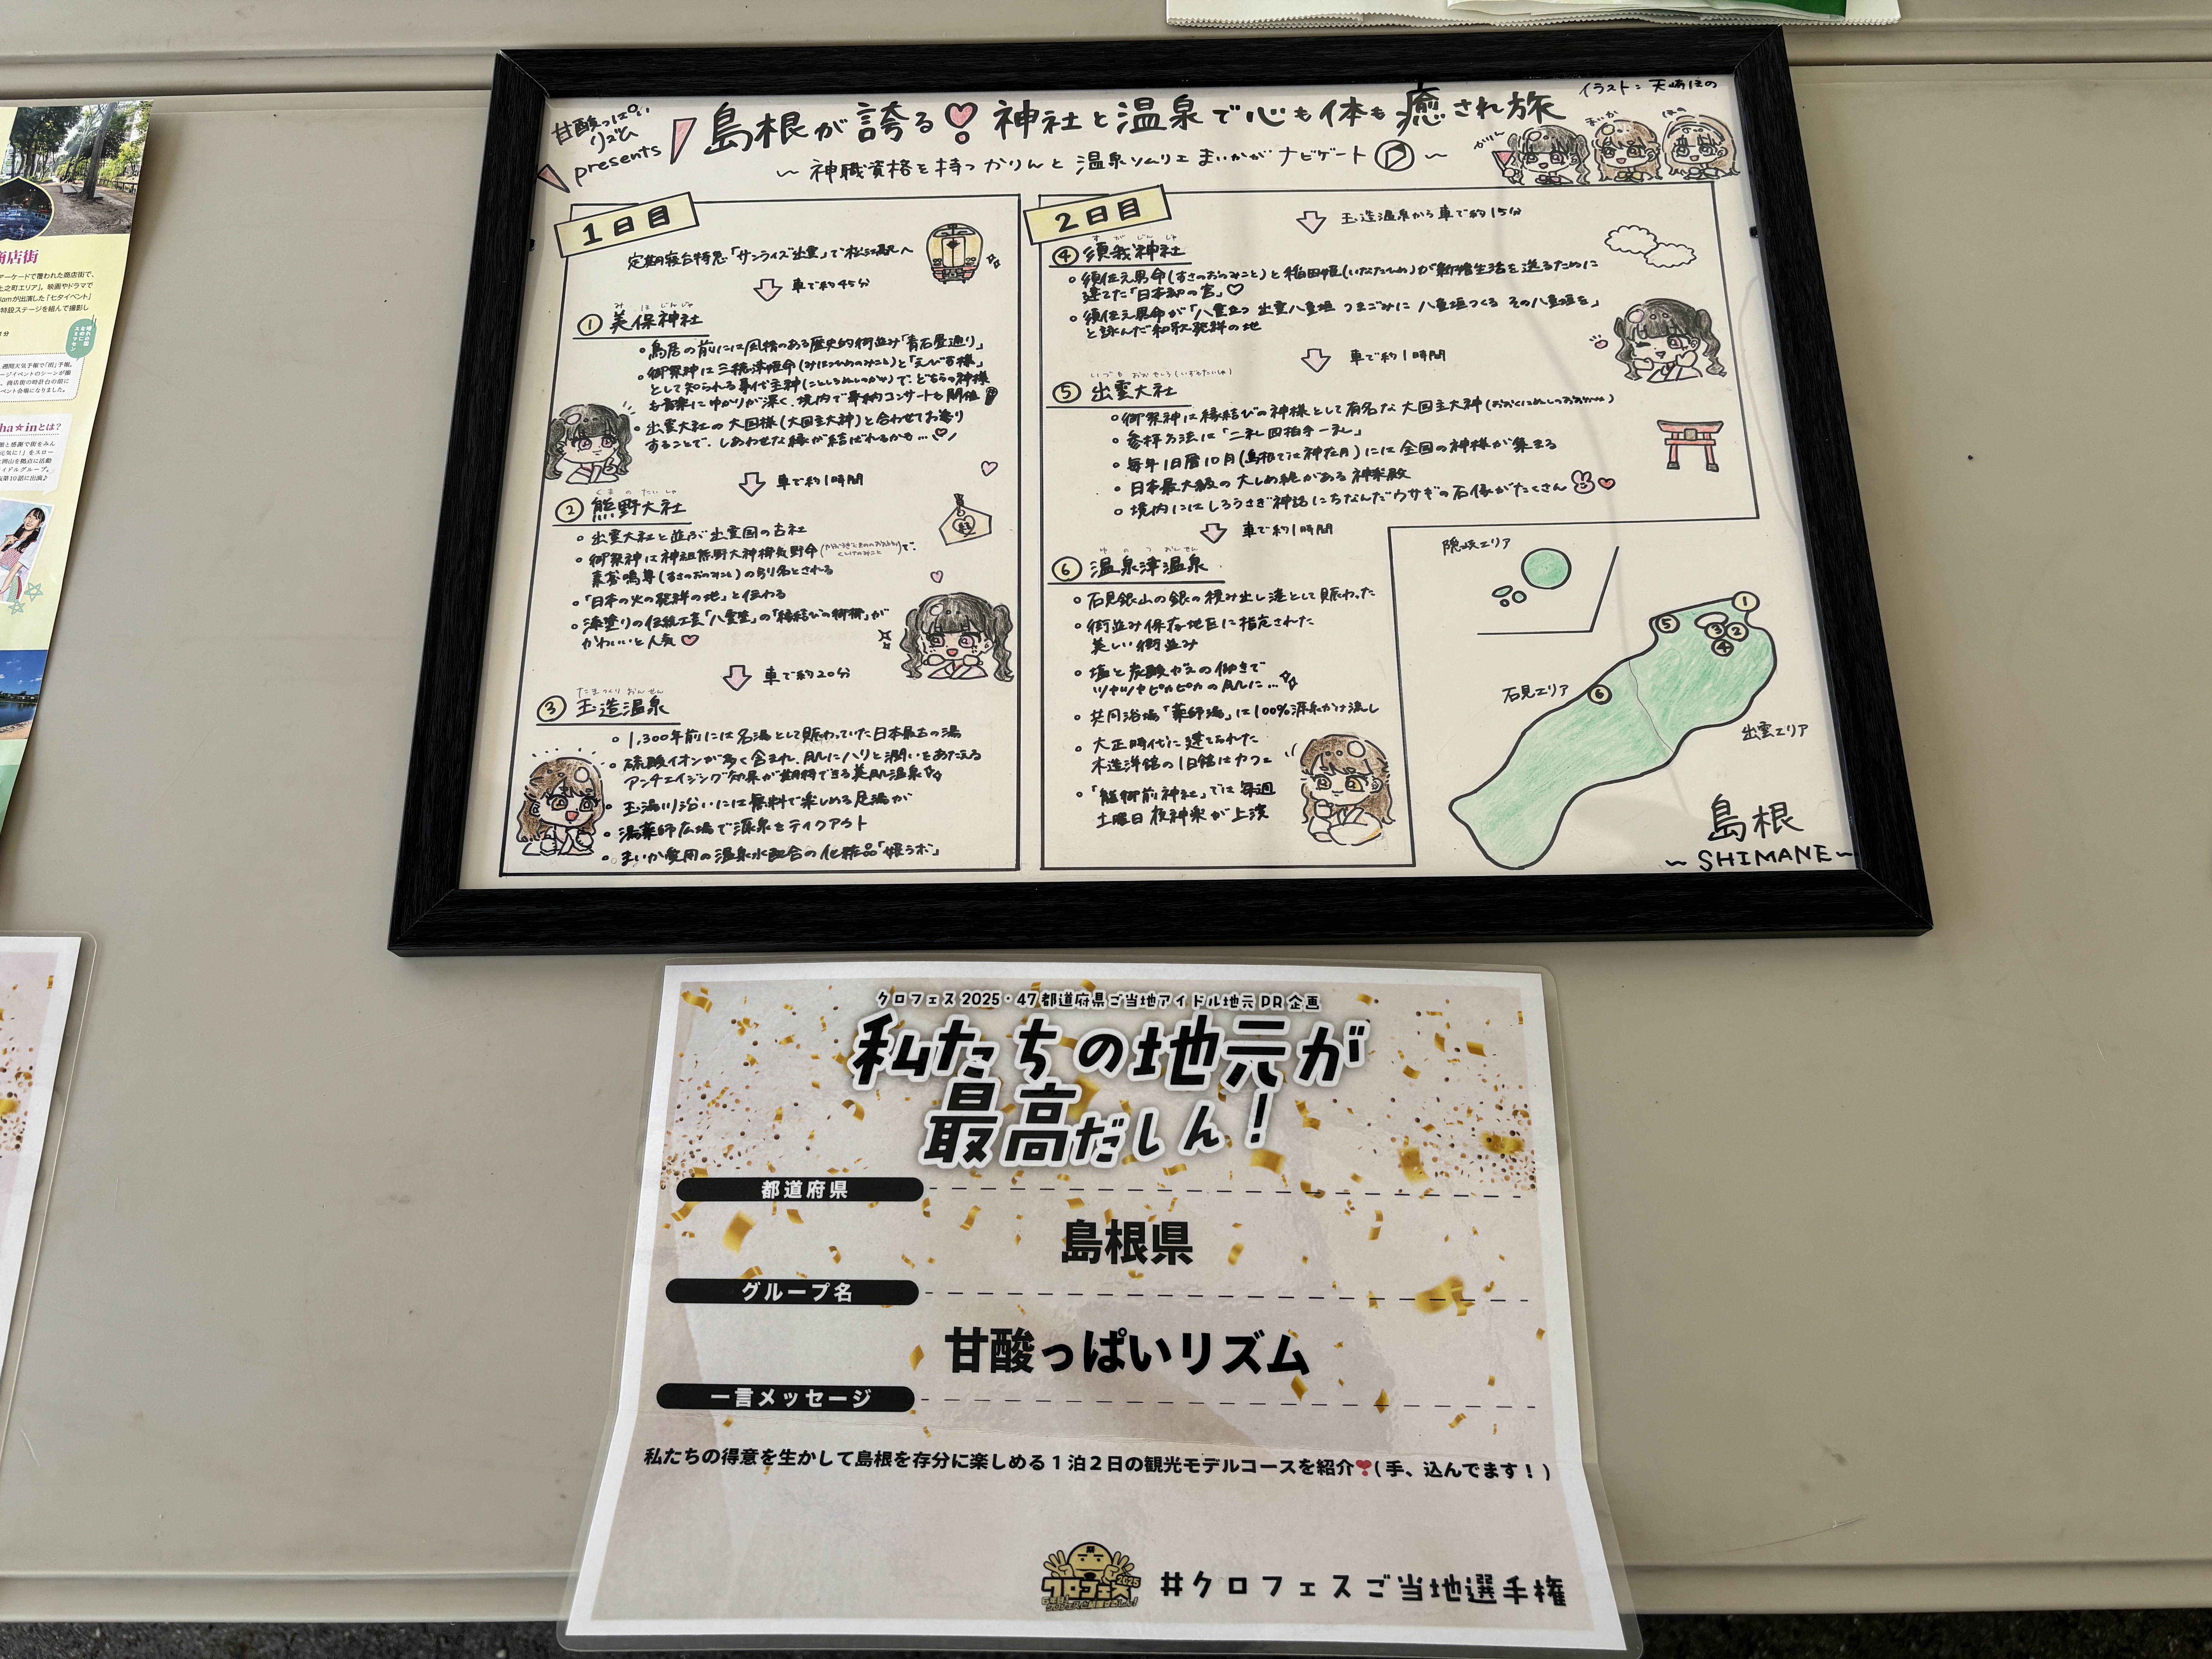 甘酸っぱい
りずむ
presents
島根が誇る 神社と温泉で心も体も癒され旅
イラスト：天崎ほの
〜 神職資格を持つかりんと温泉ソムリエまいかがナビゲート 〜
かりん
まいか
ほの
1日目
定期寝台特急「サンライズ出雲」で松江駅へ
車で約45分
みほじんじゃ
① 美保神社
鳥居の前には風情のある歴史的街並み「青石畳通り」
御祭神は三穂津姫命(みほつひめのみこと)と「えびす様」
として知られる事代主神(ことしろぬしのかみ)で、どちらの神様
も音楽にゆかりが深く、境内で奉納コンサートも開催
出雲大社の大国様(大国主大神)と合わせてお参り
することで、しあわせな縁が結ばれるかも…♡
車で約1時間
くまのたいしゃ
② 熊野大社
出雲大社と並ぶ出雲国の古社
御祭神は神祖熊野大神櫛気野命
で、
素戔嗚尊(すさのおのみこと)の別名とされる
「日本の火の発祥の地」と伝わる
漆塗りの伝統工芸「八雲塗」の「縁結びの御櫛」が
かわいいと人気
車で約20分
たまつくりおんせん
③ 玉造温泉
1,300年前には名湯として賑わっていた日本最古の湯
硫酸イオンが多く含まれ、肌にハリと潤いをあたえる
アンチエイジング効果が期待できる美肌温泉
玉湯川沿いには無料で楽しめる足湯が
湯薬師広場で源泉をテイクアウト
まいか愛用の温泉水配合の化粧品「姫ラボ」
2日目
玉造温泉から車で約15分
すがじんじゃ
④ 須我神社
須佐之男命(すさのおのみこと)と稲田姫(いなたひめ)が新婚生活を送るために
建てた「日本初の宮」♡
須佐之男命が「八雲立つ 出雲八重垣 つまごみに 八重垣つくる その八重垣を」
と詠んだ和歌発祥の地
車で約1時間
いづもおおやしろ(いずもたいしゃ)
⑤ 出雲大社
御祭神は縁結びの神様として有名な大国主大神
参拝方法は「二礼四拍手一礼」
毎年旧暦10月(島根では神在月)には全国の神様が集まる
日本最大級の大しめ縄がある神楽殿
境内にはしろうさぎ神話にちなんだウサギの石像がたくさん
車で約1時間
ゆのつおんせん
⑥ 温泉津温泉
石見銀山の銀の積み出し港として賑わった
街並み保存地区に指定された
美しい街並み
塩と炭酸ガスの働きで
ツヤツヤピカピカの肌に…
共同浴場「薬師湯」は100%源泉かけ流し
大正時代に建てられた
木造洋館の旧館はカフェ
「龍御前神社」では毎週
土曜日夜神楽が上演
隠岐エリア
①
⑤
③②
④
石見エリア ⑥
出雲エリア
島根
〜 SHIMANE 〜
クロフェス2025・47都道府県ご当地アイドル地元PR企画
私たちの地元が
最高だしん！
都道府県
島根県
グループ名
甘酸っぱいリズム
一言メッセージ
私たちの得意を生かして島根を存分に楽しめる1泊2日の観光モデルコースを紹介❣(手、込んでます！)
クロフェス
2025
#クロフェスご当地選手権
商店街
アーケードで覆われた商店街で、
とは？